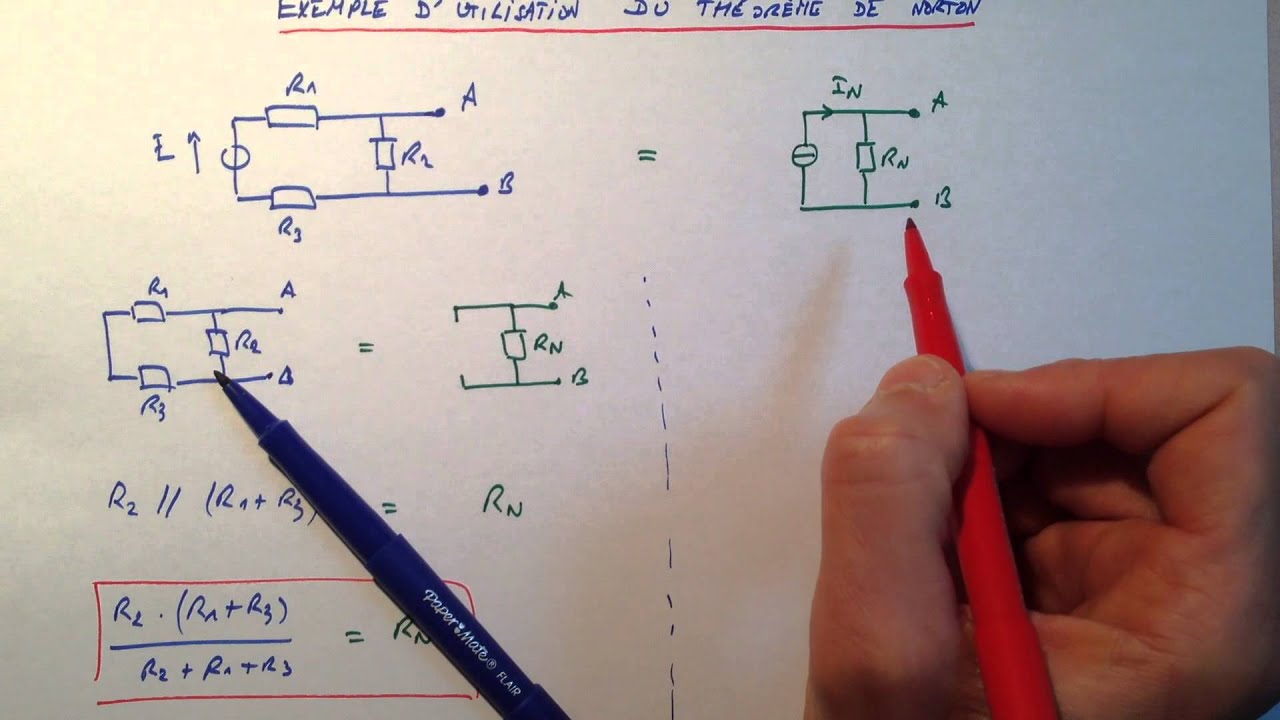 EXEMPLE D'UTILISATION DU THÉORÈME DE NORTON
R1 A
E R2
B
R3
=
IN A
RN
B
R1 A
R2
B
R3
=
A
RN
B
R2 // (R1 + R3) = RN
R2 . (R1 + R3)
R2 + R1 + R3
= RN
PAPER MATE® FLAIR